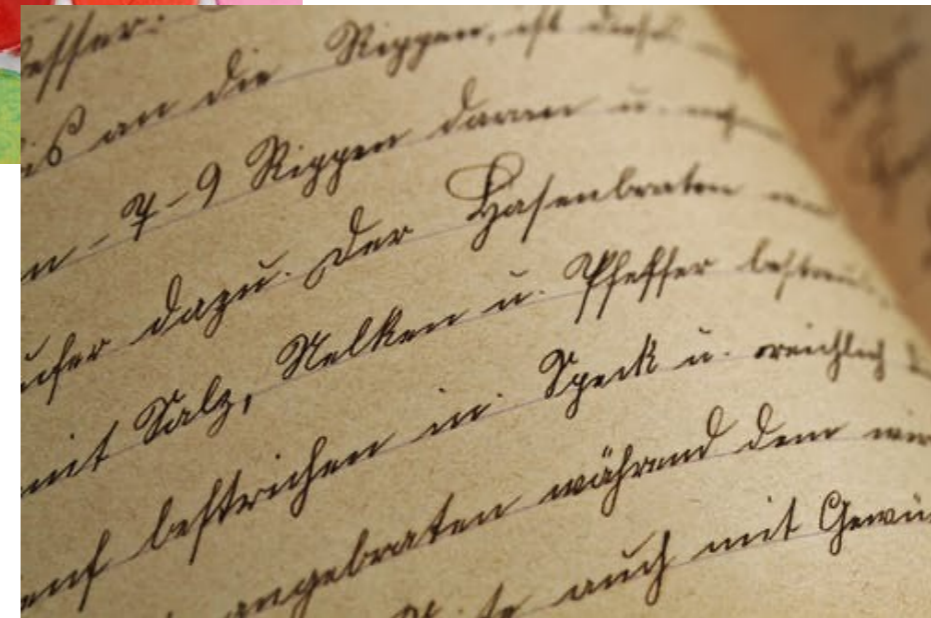 besser.
an die Rippen, ist
7-9 Rippen daran u.
dazu. Der Hasenbraten
mit Salz, Nelken u. Pfeffer
bestrichen in Speck u. reichlich
angebraten während dem
auch mit